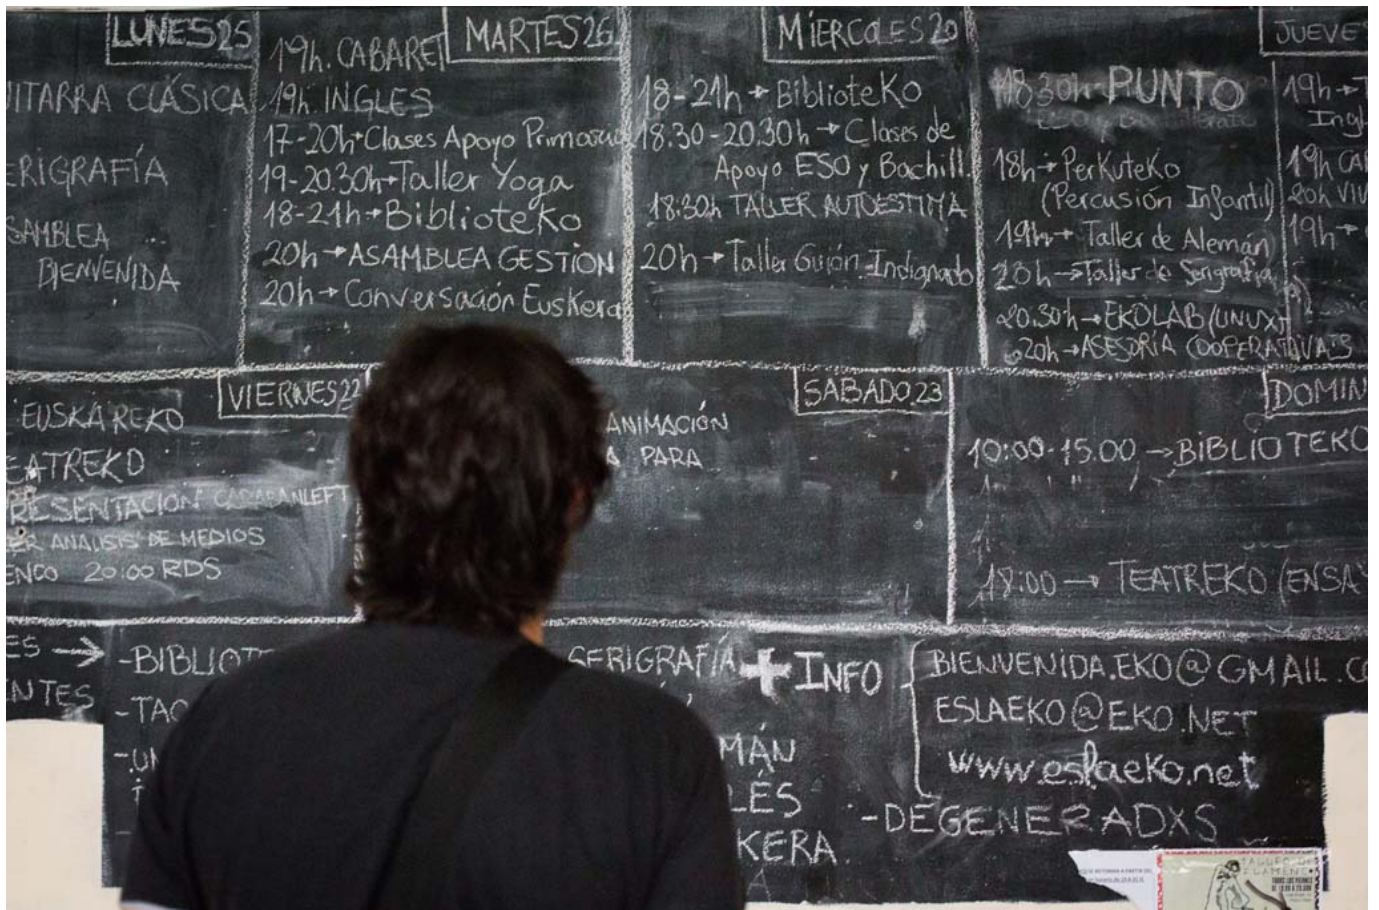 LUNES 25
ITARRA CLÁSICA
ERIGRAFÍA
SAMBLEA
BIENVENIDA
MARTES 26
19h. CABARET
19h. INGLES
17-20h→Clases Apoyo Primaria
19-20.30h→Taller Yoga
18-21h→BiblioteKo
20h→ASAMBLEA GESTIÓN
20h→Conversación Euskera
MIERCOLES 20
18-21h→BiblioteKo
18.30-20.30h→Clases de
Apoyo ESO y Bachill.
18:30h TALLER AUTOESTIMA
20h→Taller Guión Indignado
JUEVES
18:30h PUNTO
18h→PerKuteKo
(Percusión Infantil)
19h→Taller de Alemán
20h→Taller de Serigrafía
20.30h→EKOLAB (LINUX)
20h→ASESORÍA COOPERATIVAS
19h→
Ingl
19h CA
20h VIV
19h→
VIERNES 22
EUSKAREKO
EATREKO
RESENTACIÓN
ER ANALISIS DE MEDIOS
ENCO 20:00 RDS
SABADO.23
ANIMACIÓN
A PARA
DOMIN
10:00-15.00→BIBLIOTEKO
18:00→TEATREKO (ENSAY
ES →
NTES
-BIBLIOT
-TAC
-UN
SERIGRAFÍA
MÁN
LÉS
KERA.
+ INFO
BIENVENIDA.EKO@GMAIL.CO
ESLAEKO@EKO.NET
www.eslaeko.net
-DEGENERADXS